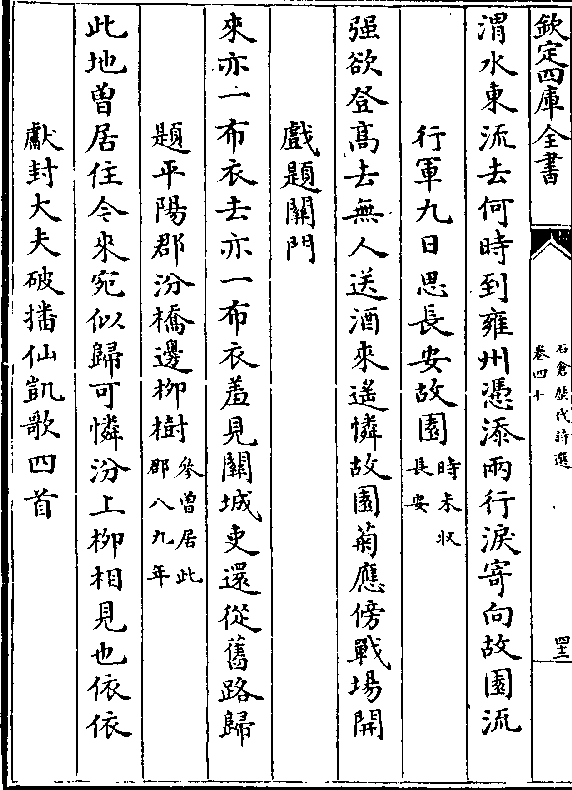 欽定四庫全書
石倉歷代詩選
卷四十
四十二
渭水東流去何時到雍州憑添兩行淚寄向故園流
行軍九日思長安故園時未収
長安
强欲登高去無人送酒來遥憐故園菊應傍戰場開
戲題關門
來亦一布衣去亦一布衣羞見關城吏還從舊路歸
題平陽郡汾橋邊栁樹參曾居此
郡八九年
此地曽居住今來宛似歸可憐汾上栁相見也依依
獻封大夫破播仙凱歌四首